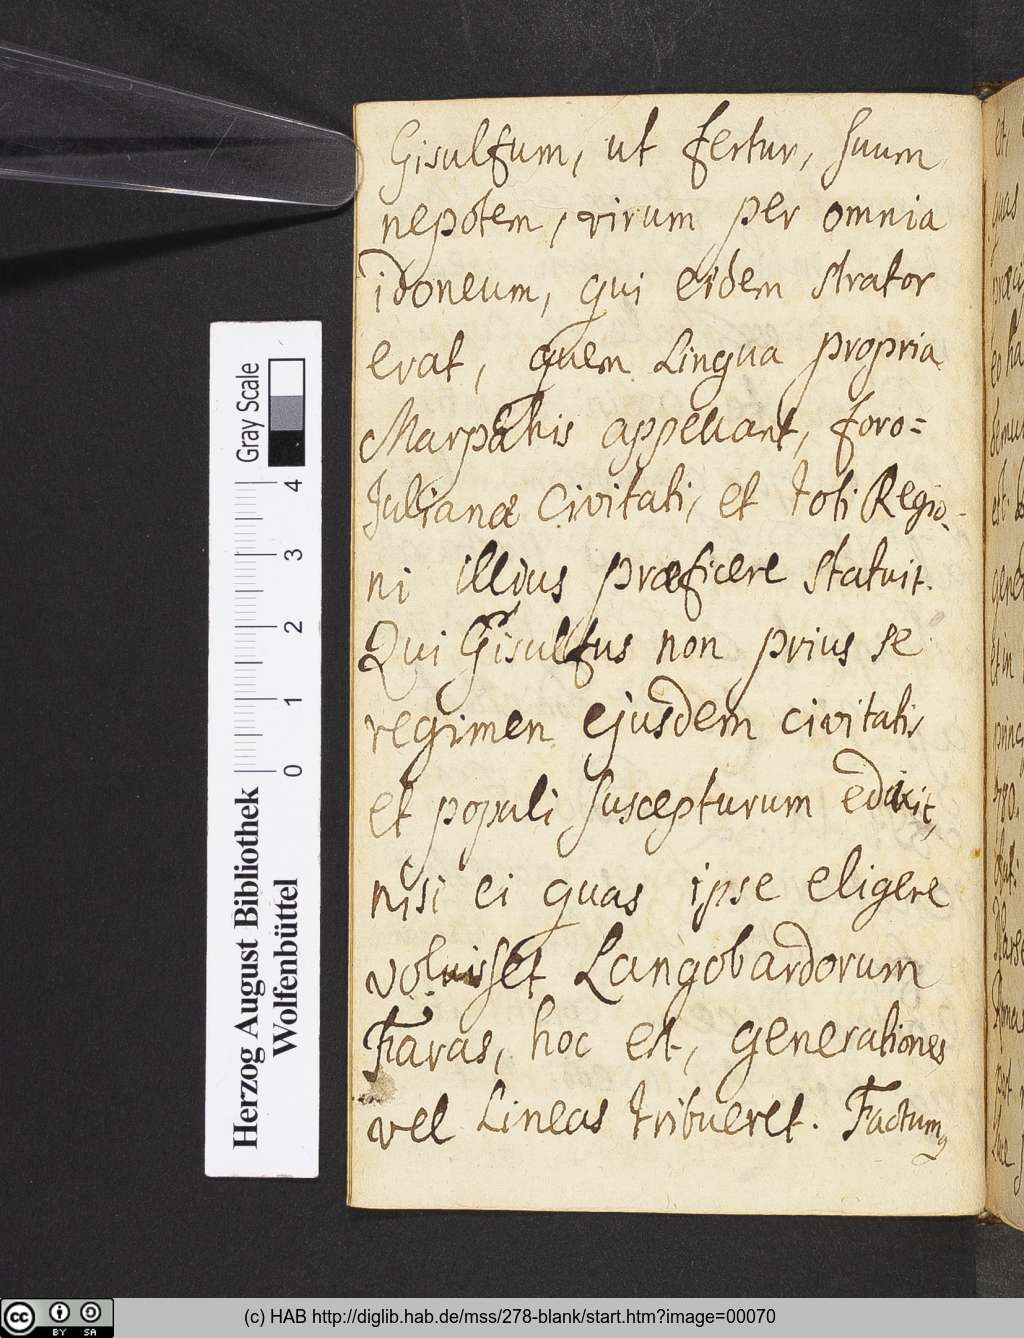 Gisulfum, ut fertur, suum
nepotem, virum per omnia
idoneum, qui eidem strator
erat, quem Lingua propria
Marpahis appellant, foro=
Julianæ Civitati, et toti Regio-
ni illius præficere statuit.
Qui Gisulfus non prius se
regimen ejusdem civitatis
et populi suscepturum edixit,
nisi ei quas ipse eligere
voluisset Langobardorum
Faras, hoc est, generationes
vel Lineas tribueret. Factumq
Gray Scale
4
3
2
1
0
Herzog August Bibliothek
Wolfenbüttel
cc BY SA
(c) HAB http://diglib.hab.de/mss/278-blank/start.htm?image=00070